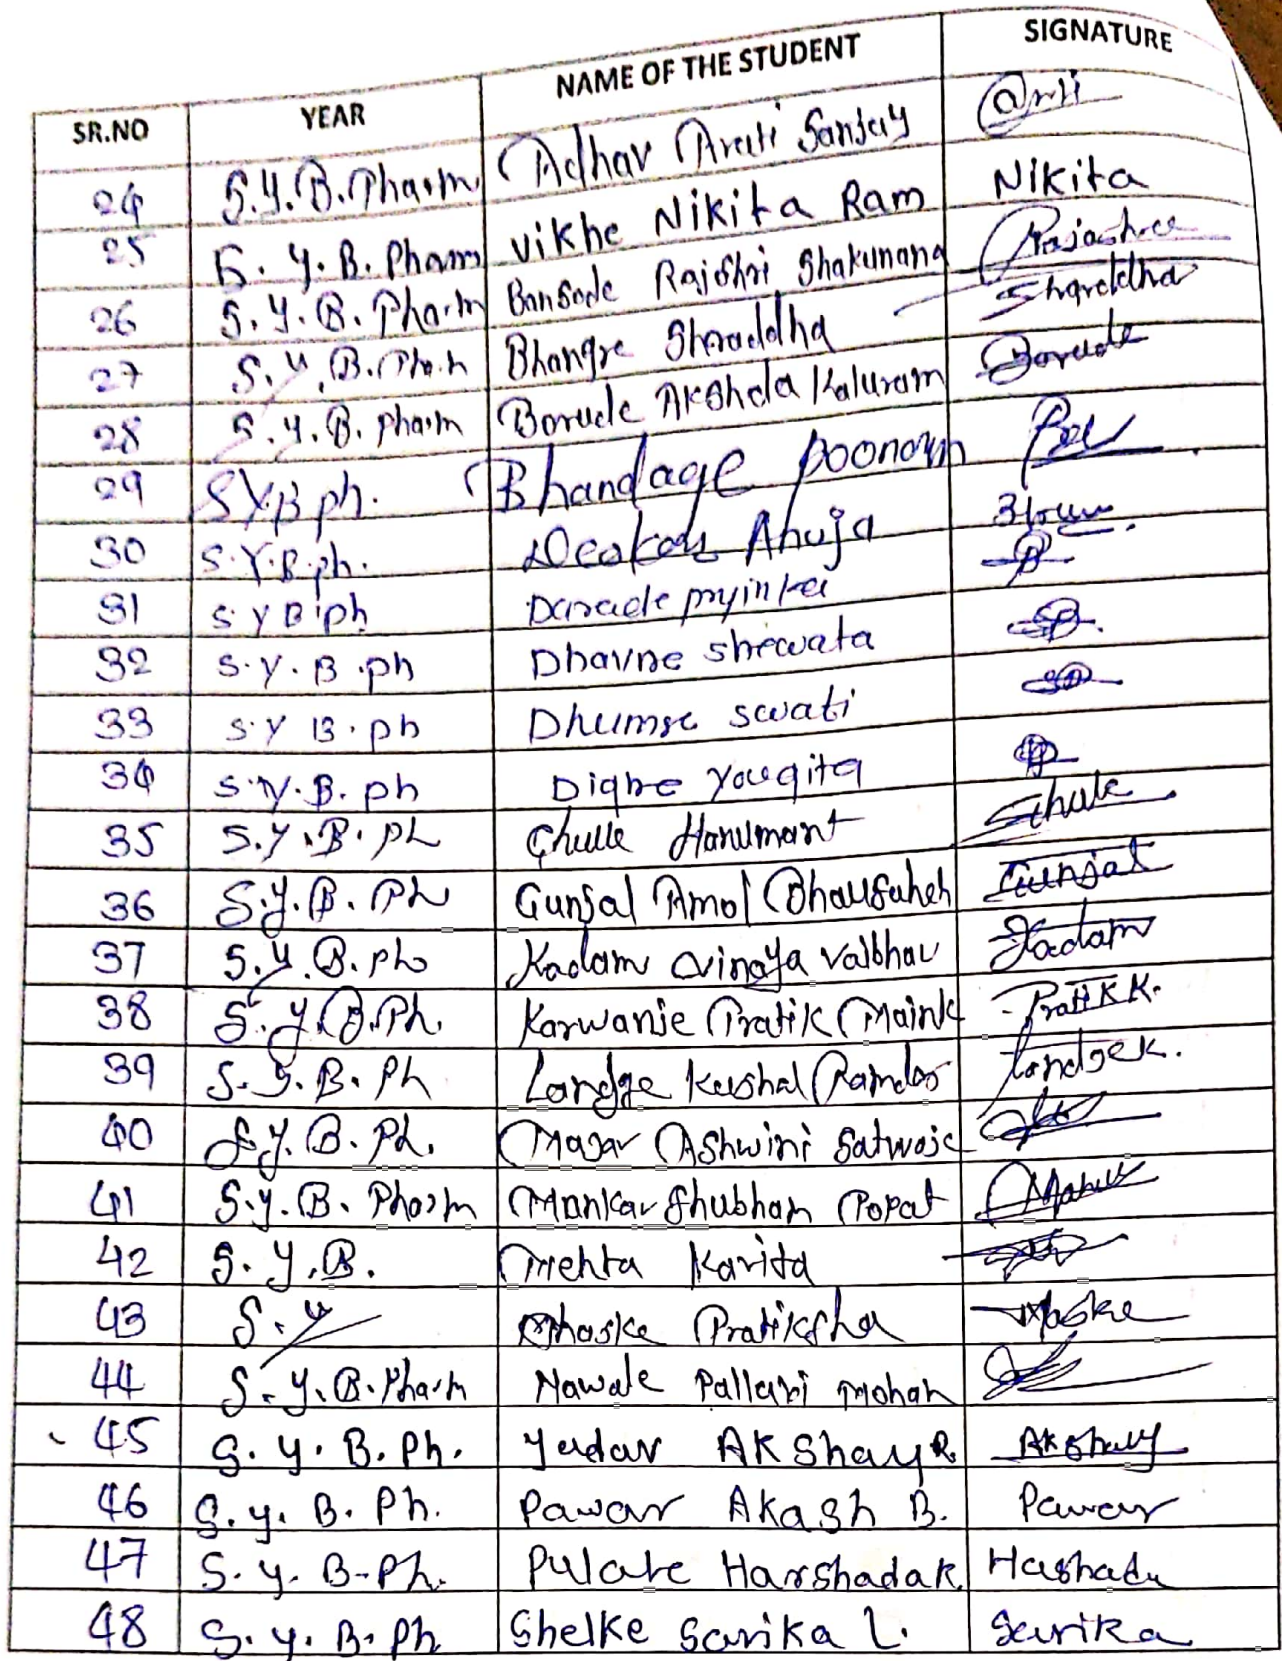 SR.NO YEAR NAME OF THE STUDENT SIGNATURE
24 S.Y.B.Pharm Adhav Arati Sanjay @rti
25 S.Y.B.Pharm Vikhe Nikita Ram Nikita
26 S.Y.B.Pharm Bansode Rajshri Shakunana Rajashree
27 S.Y.B.Pharm Bhangre Shraddha Shraddha
28 S.Y.B.Pharm Borude Akshda Kaluram Borude
29 SYB ph. Bhandage Poonam
30 S.Y.B.ph. Anuja
31 S Y B ph Darade
32 S.Y.B.ph Dhavne shewata
33 S.Y B.ph Dhumse swati
34 S.Y.B.ph Dighe Yougita
35 S.Y.B.ph Ghule Hanumant Ghule
36 S.Y.B.Ph Gunjal Amol Bhausaheb Gunjal
37 S.Y.B.ph Kadam Vinaya Vaibhav Kadam
38 S.Y.B.Ph. Karwanje Pratik Manik Pratik K.
39 S.Y.B.Ph Landge Kushal Ramdas Landge K.
40 S.Y.B.Ph. Magar Ashwini
41 S.Y.B.Pharm Mankar Shubham Popat
42 S.Y.B. Mehta Kavita
43 S.Y Mhaske Pratiksha Mhaske
44 S.Y.B.Pharm Nawale Pallavi Mohan
45 S.Y.B.Ph. Yadav AKShay R. Akshay
46 S.y.B.Ph. Pawar Akash B. Pawar
47 S.y.B-Ph. Pulate Harshada K. Hashada
48 S.y.B.Ph Shelke Sarika L. Sarika